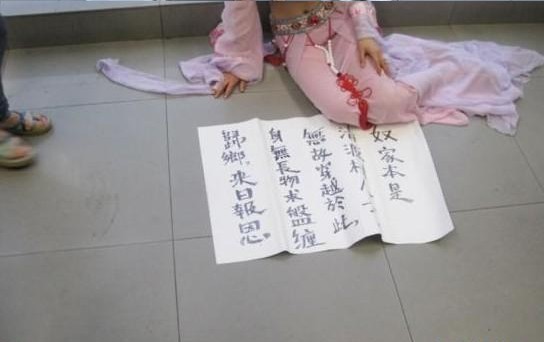 奴家本是
清波村人士
無故穿越於此，
身無長物求盤纏
歸鄉，來日報恩。